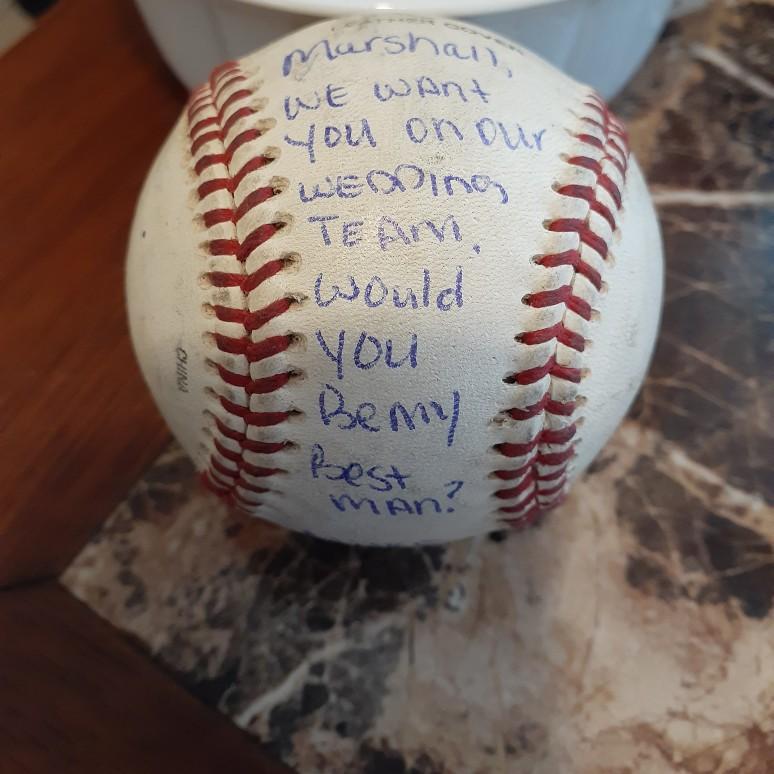 LEATHER COVER
Marshall,
WE WANT
YOU ON OUR
WEDDING
TEAM.
Would
YOU
Be MY
Best
MAN?
CHINA